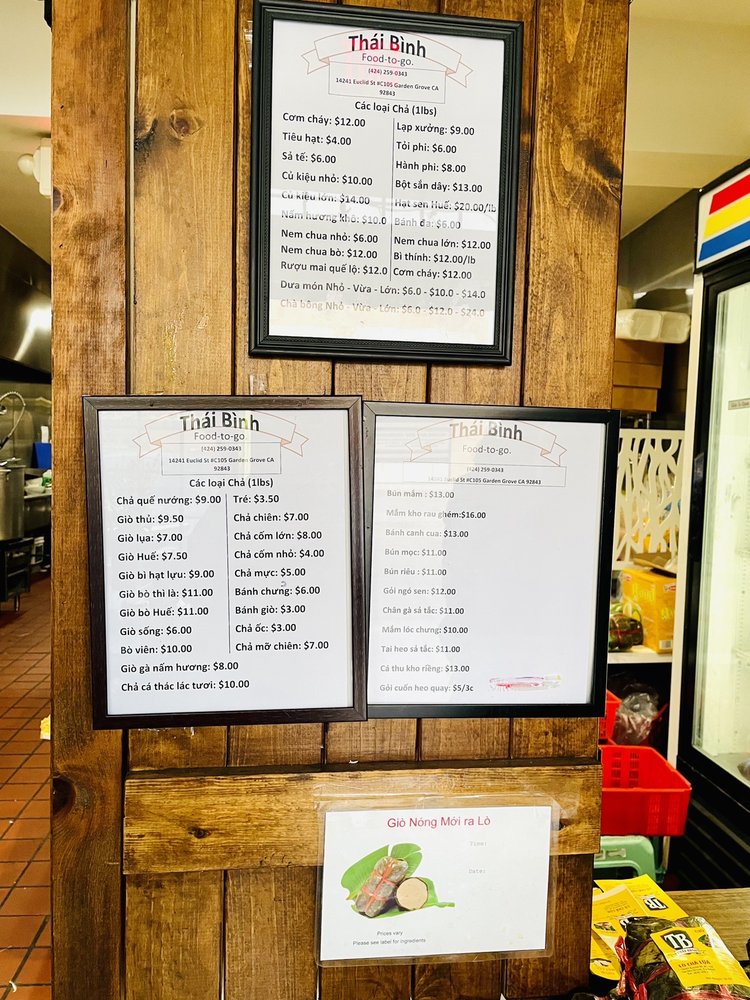 Thái Bình
Food-to-go.
(424) 259-0343
14241 Euclid St #C105 Garden Grove CA
92843
Các loại Chả (1lbs)
Cơm cháy: $12.00
Tiêu hạt: $4.00
Sả tế: $6.00
Củ kiệu nhỏ: $10.00
Củ kiệu lớn: $14.00
Nấm hương khô: $10.0
Nem chua nhỏ: $6.00
Nem chua bò: $12.00
Rượu mai quế lộ: $12.0
Lạp xưởng: $9.00
Tỏi phi: $6.00
Hành phi: $8.00
Bột sắn dây: $13.00
Hạt sen Huế: $20.00/lb
Bánh đa: $6.00
Nem chua lớn: $12.00
Bì thính: $12.00/lb
Cơm cháy: $12.00
Dưa món Nhỏ - Vừa - Lớn: $6.0 - $10.0 - $14.0
Chà bông Nhỏ - Vừa - Lớn: $6.0 - $12.0 - $24.0
Thái Bình
Food-to-go
(424) 259-0343
14241 Euclid St #C105 Garden Grove CA
92843
Các loại Chả (1lbs)
Chả quế nướng: $9.00
Giò thủ: $9.50
Giò lụa: $7.00
Giò Huế: $7.50
Giò bì hạt lựu: $9.00
Giò bò thì là: $11.00
Giò bò Huế: $11.00
Giò sống: $6.00
Bò viên: $10.00
Tré: $3.50
Chả chiên: $7.00
Chả cốm lớn: $8.00
Chả cốm nhỏ: $4.00
Chả mực: $5.00
Bánh chưng: $6.00
Bánh giò: $3.00
Chả ốc: $3.00
Chả mỡ chiên: $7.00
Giò gà nấm hương: $8.00
Chả cá thác lác tươi: $10.00
Thái Bình
Food-to-go.
(424) 259-0343
14241 Euclid St #C105 Garden Grove CA 92843
Bún mắm : $13.00
Mắm kho rau ghém:$16.00
Bánh canh cua: $13.00
Bún mọc: $11.00
Bún riêu : $11.00
Gỏi ngó sen: $12.00
Chân gà sả tắc: $11.00
Mắm lóc chưng: $10.00
Tai heo sả tắc: $11.00
Cá thu kho riềng: $13.00
Gỏi cuốn heo quay: $5/3c
Giò Nóng Mới ra Lò
Time:
Date:
Prices vary
Please see label for ingredients
TB
TB
GIÒ CHẢ LỤA